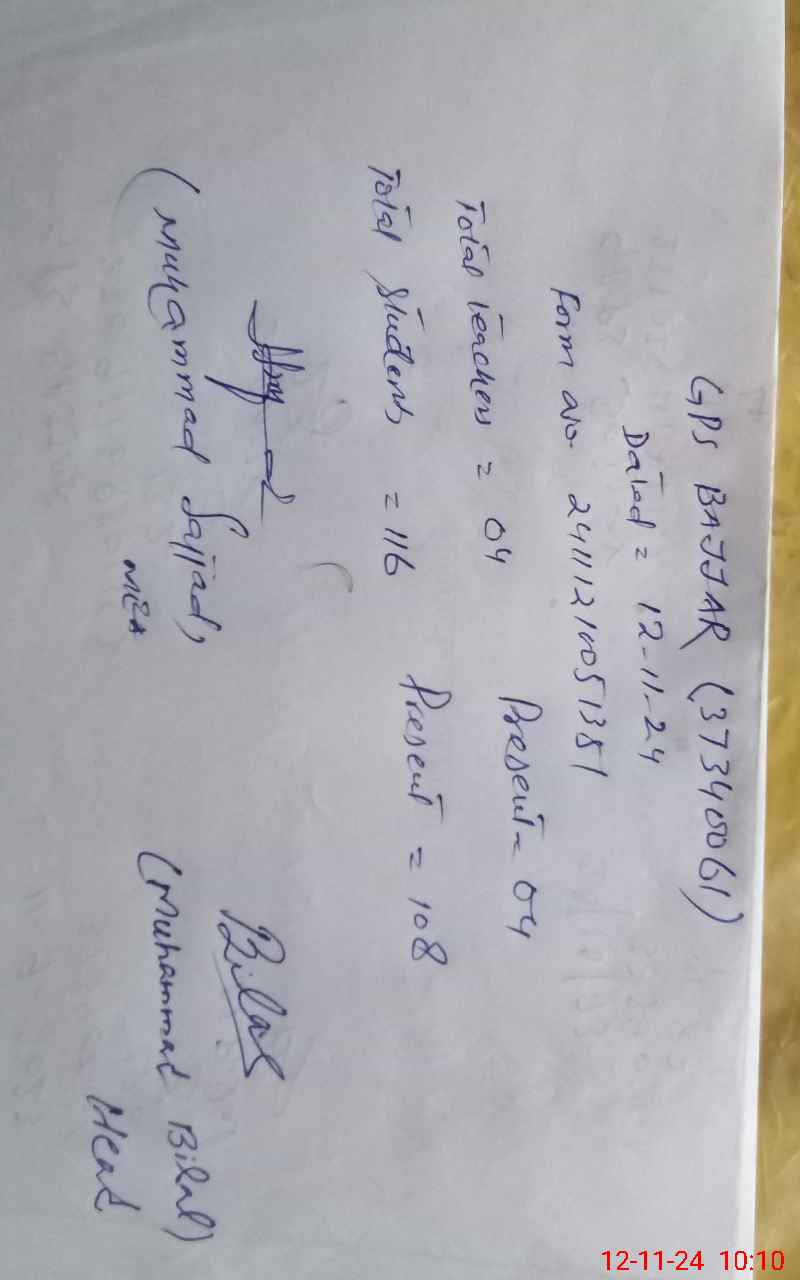 GPS BAJJAR (37340061)
Dated = 12-11-24
Form No. 24111210051351
Total teachers = 04 Present = 04
Total students = 116 Present = 108
Bilal
(Muhammad Sajjad, (Muhammad Bilal)
MEA Head
12-11-24 10:10